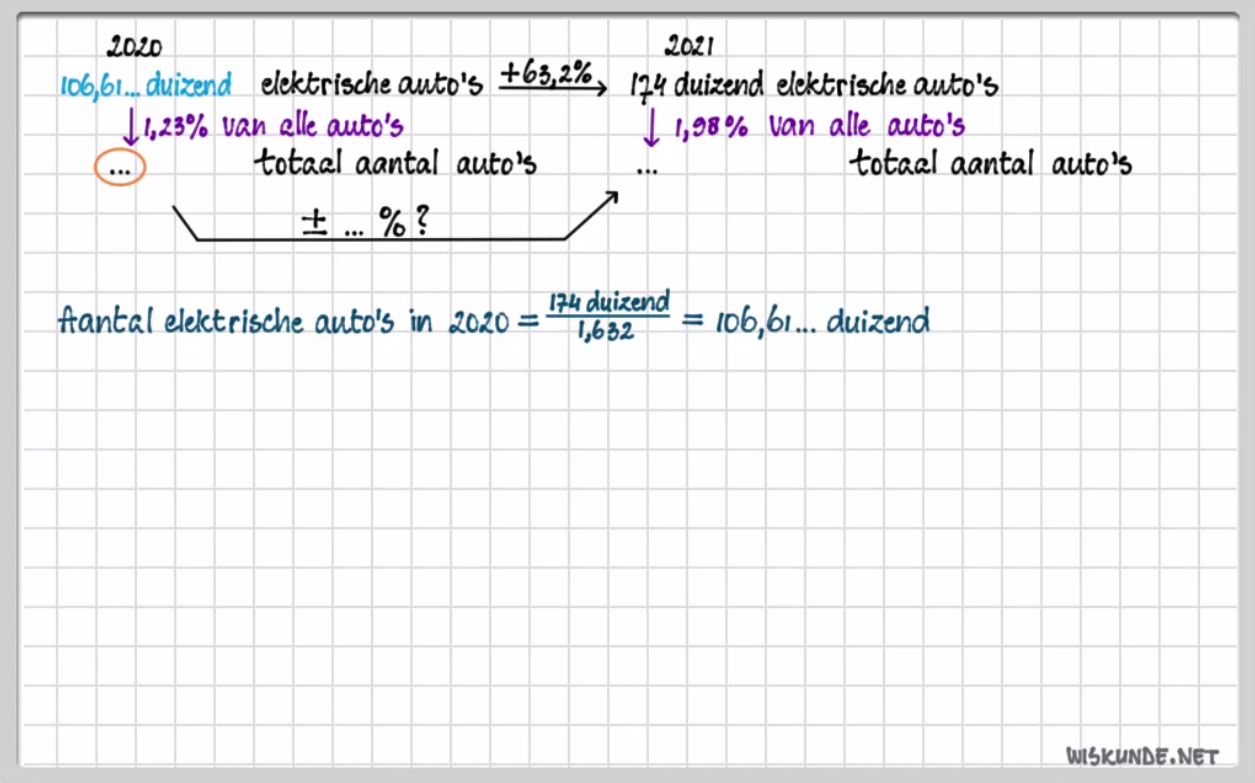 2020 2021
106,61... duizend elektrische auto's +63,2% 174 duizend elektrische auto's
↓1,23% van alle auto's ↓ 1,98% van alle auto's
... totaal aantal auto's ... totaal aantal auto's
± ... %?
Aantal elektrische auto's in 2020 = 174 duizend / 1,632 = 106,61... duizend
WISKUNDE.NET